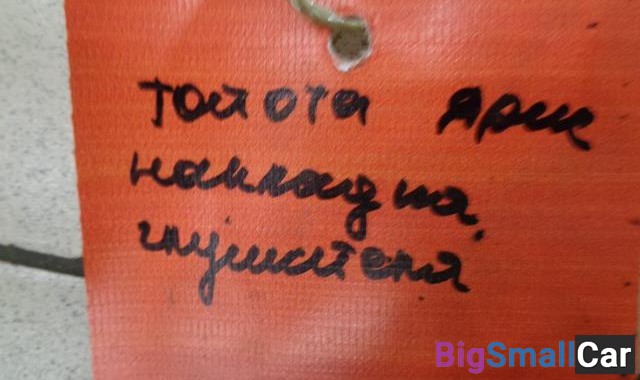 тойота ярис
накладка
глушителя
BigSmallCar